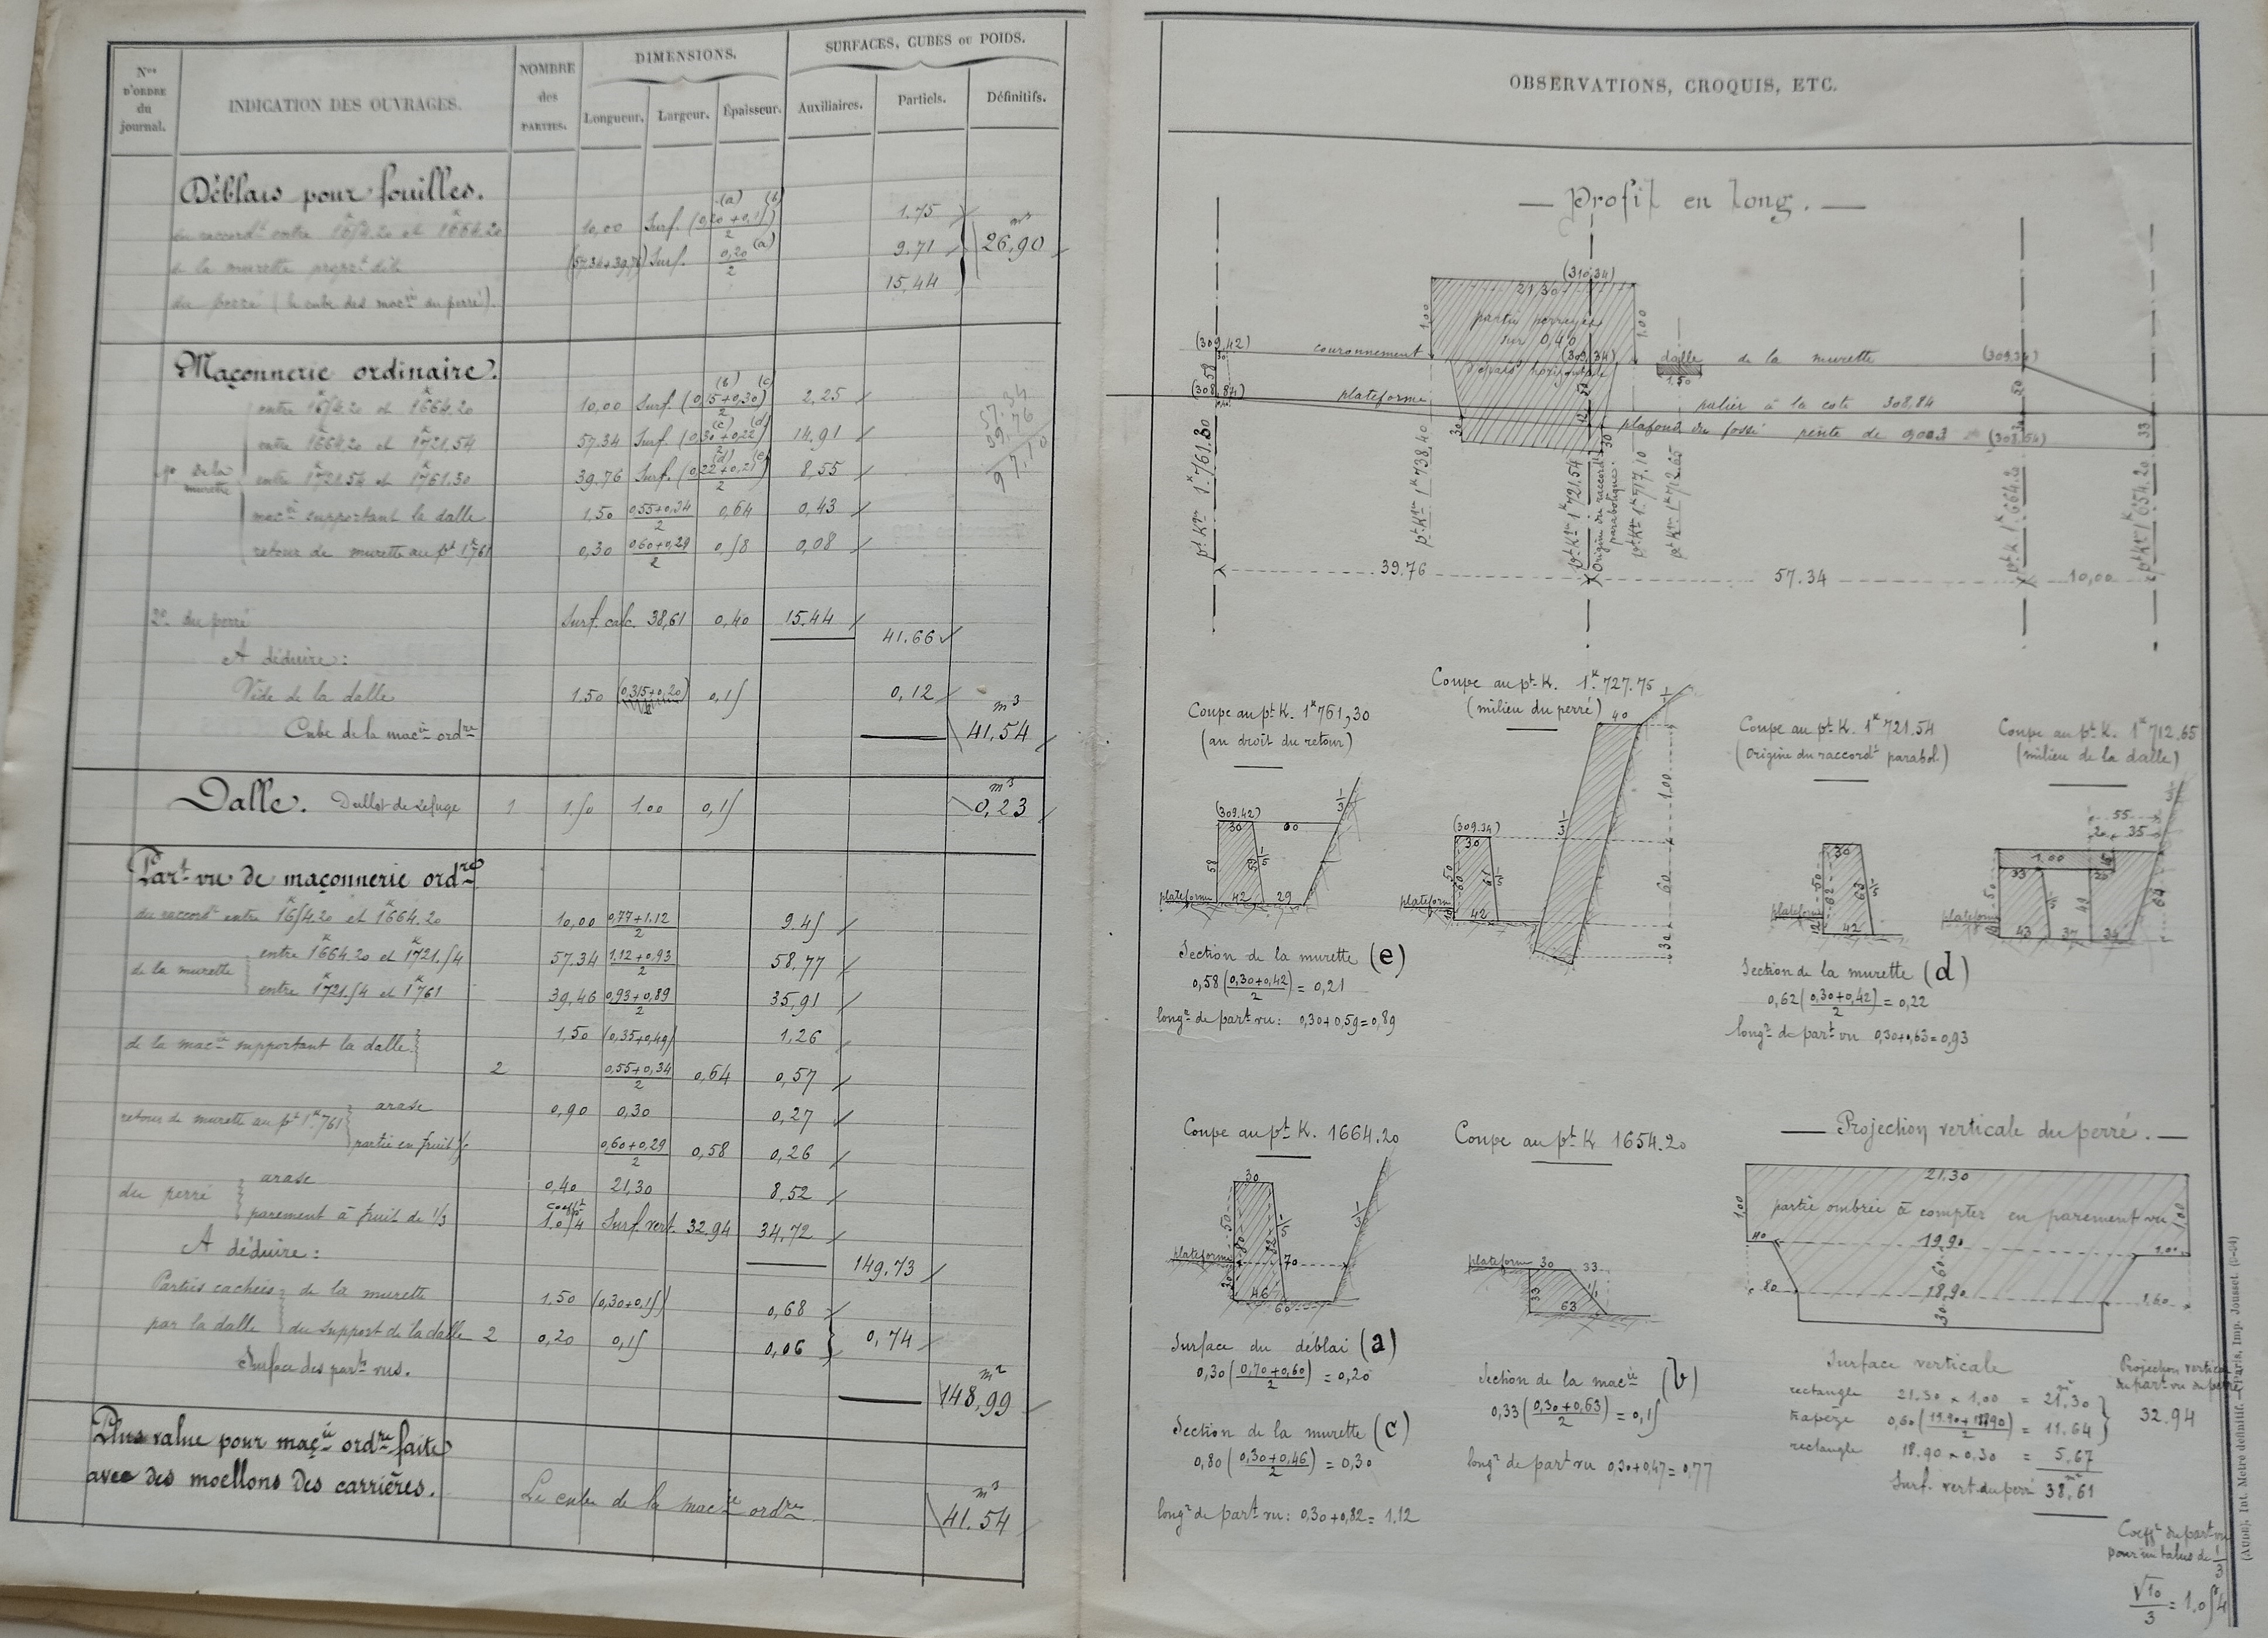 Nos D'ORDRE du journal.
INDICATION DES OUVRAGES.
NOMBRE des PARTIES.
DIMENSIONS.
Longueur. Largeur. Épaisseur.
SURFACES, CUBES OU POIDS.
Auxiliaires. Partiels. Définitifs.
Déblais pour fouilles.
(a) (b)
du raccordt entre 1k654.20 et 1k664.20 10,00 Surf. (0,20+0,15)/2 1.75
de la murette proprt dite (57.34+39,76) Surf. 0,20/2 (a) 9.71
m3 26,90
du perré (le cube des macie du perré). 15,44
Maçonnerie ordinaire.
(b) (c)
entre 1k654.20 et 1k664.20 10,00 Surf. (0,15+0,30)/2 2,25
(c) (d)
entre 1k664.20 et 1k721,54 57.34 Surf. (0,30+0,22)/2 14,91
(d) (e)
1o de la murette entre 1k721.54 et 1k761.30 39.76 Surf. (0,22+0,21)/2 8,55
57.34
39.76
97,10
macie supportant la dalle 1,50 (0,55+0,34)/2 0,64 0,43
retour de murette au pt 1k761 0,30 (0,60+0,29)/2 0,58 0,08
2o du perré Surf. calc. 38,61 0,40 15.44
41.66
A déduire:
Vide de la dalle 1.50 (0,315+0,20) 0,15 0,12
Cube de la macie ordre m3 41,54
Dalle. Dallot de refuge 1 1.50 1.00 0,15 m3 0,23
Part vu de maçonnerie ordre
du raccordt entre 1k654.20 et 1k664.20 10,00 (0,77+1.12)/2 9.45
de la murette entre 1k664.20 et 1k721.54 57.34 (1,12+0,93)/2 58,77
entre 1k721.54 et 1k761 39,46 (0,93+0,89)/2 35,91
de la macie supportant la dalle 1,50 (0,35+0,49) 1,26
2 (0,55+0,34)/2 0,64 0,57
retour de murette au pt 1k761 arase 0,90 0,30 0,27
partie en fruit 1/5 (0,60+0,29)/2 0,58 0,26
du perré arase 0,40 21,30 8,52
parement à fruit de 1/3 coefft 1.054 Surf. vert. 32.94 34,72
149,73
A déduire:
Parties cachées par la dalle de la murette 1.50 (0,30+0,15) 0,68
du support de la dalle 2 0,20 0,15 0,06 0,74
Surface des parts vus. m2 148,99
Plus value pour maçie ordre faite
avec des moellons des carrières.
Le cube de la macie ordre m3 41.54
OBSERVATIONS, CROQUIS, ETC.
— Profil en long. —
(310,34)
21,30
1.00 partie perreyée 1.00
sur 0,40
(309,42) couronnement (309,34) dalle de la murette (309.34)
30 58 d'épaisr horizontale 1.50 50
(308,84) plateforme palier à la cote 308,84
50 12 30 30 plafond du fossé pente de 0,003 (308.54) 33
pt Kque 1k761.30
pt Kque 1k738,40
pt Kque 1k721.54
Origine du raccordt parabolique.
pt Kque 1k717.10
pt Kque 1k712.65
pt K 1k664.20
pt Kque 1k654.20
39.76 57.34 10,00
Coupe au pt K. 1k761,30
(au droit du retour)
(309.42)
30 60 1/3
58 59 1/5
plateforme 42 29
Section de la murette (e)
0,58 (0,30+0,42)/2 = 0,21
longr de part vu: 0,30+0,59=0,89
Coupe au pt K. 1k727.75
(milieu du perré)
40
1/3 1.00
(309.34)
30
50 60 61 1/5 60
plateforme 10 42
30
Coupe au pt K. 1k721.54
(Origine du raccordt parabol.)
30
50 62 63 1/5
plateforme 12 42
Section de la murette (d)
0,62 (0,30+0,42)/2 = 0,22
longr de part vu 0,30+0,63=0,93
Coupe au pt K. 1k712,65
(milieu de la dalle)
55
20 35
1.00 15
33 20
50 1/5 49 64
plateforme 43 37 34
Coupe au pt K. 1664.20
30
50 80 82 1/5 1/3
plateforme 70
30 46
60
Surface du déblai (a)
0,30 (0,70+0,60)/2 = 0,20
Section de la murette (c)
0,80 (0,30+0,46)/2 = 0,30
longr de part vu: 0,30+0,82= 1,12
Coupe au pt K 1654.20
plateforme 30 33
33 63
Section de la macie (b)
0,33 (0,30+0,63)/2 = 0,15
longr de part vu 0,30+0,47=0,77
— Projection verticale du perré. —
21.30
1,00 partie ombrée à compter en parement vu 1,00
40 19,90 1.00
60
80 18,90 1,60
30
Surface verticale
rectangle 21.30 × 1,00 = 21,30 m2
trapèze 0,60 (19.90+18,90)/2 = 11.64
rectangle 18.90 × 0,30 = 5,67
Surf. vert. du perré 38,61 m2
Projection verticale
du part vu du perré
32.94
Coefft du part vu
pour un talus de 1/3
√10/3 = 1.054
(Aubn). Int. Métré définitif. — Paris, Imp. Jousset. (6-04)